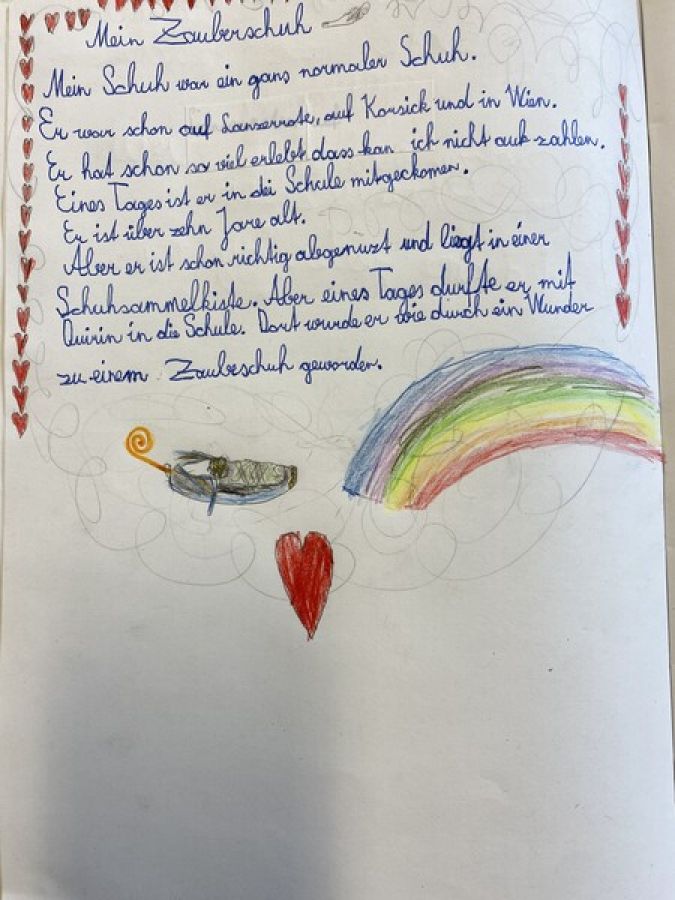 Mein Zauberschuh
Mein Schuh war ein gans normaler Schuh.
Er war schon auf Lanserrote, auf Korsick und in Wien.
Er hat schon so viel erlebt dass kan ich nicht auf zahlen.
Eines Tages ist er in dei Schule mitgeckomen.
Er ist über zehn Jare alt.
Aber er ist schon richtig abgenuzt und liegt in einer
Schuhsammelkiste. Aber eines Tages durfte er mit
Quirin in die Schule. Dort wurde er wie durch ein Wunder
zu einem Zaubeschuh geworden.